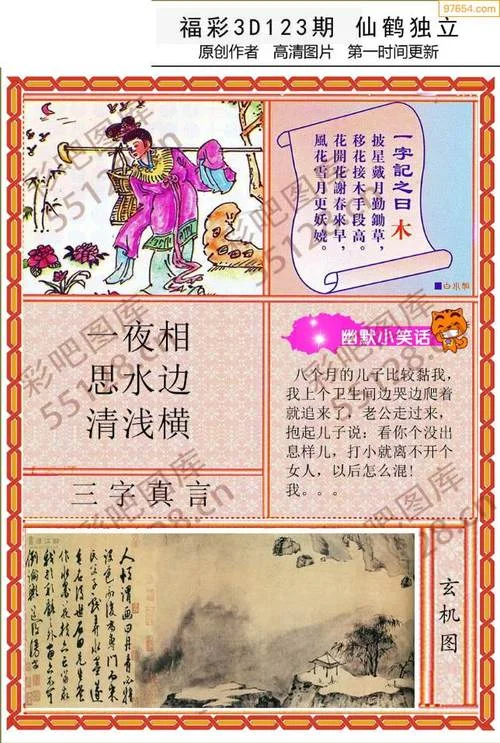 97654.com
福彩3D123期 仙鹤独立
原创作者 高清图片 第一时间更新
一字記之曰 木
披星戴月勤鋤草，
移花接木手段高。
花開花謝春來早，
風花雪月更妖娆。
一夜相
思水边
清浅横
三字真言
幽默小笑话
八个月的儿子比较黏我，
我上个卫生间边哭边爬着
就追来了，老公走过来，
抱起儿子说：看你个没出
息样儿，打小就离不开个
女人，以后怎么混！
我。。。
玄机图
彩吧图库
55128.cn